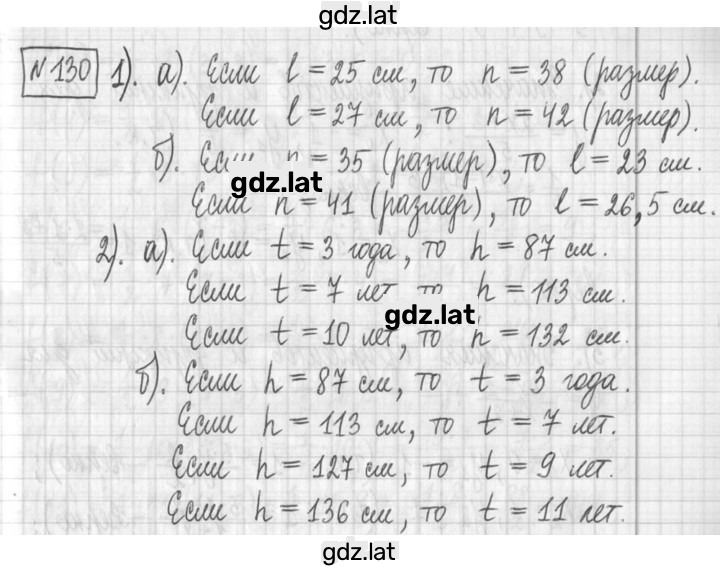 gdz.lat
№130 1). а). Если l = 25 см, то n = 38 (размер).
Если l = 27 см, то n = 42 (размер).
б). n = 35 (размер), то l = 23 см.
gdz.lat
Если n = 41 (размер), то l = 26,5 см.
2). а). Если t = 3 года, то h = 87 см.
Если t = 7 лет то h = 113 см.
gdz.lat
Если t = 10 лет, то h = 132 см.
б). Если h = 87 см, то t = 3 года.
Если h = 113 см, то t = 7 лет.
Если h = 127 см, то t = 9 лет.
Если h = 136 см, то t = 11 лет.
gdz.lat